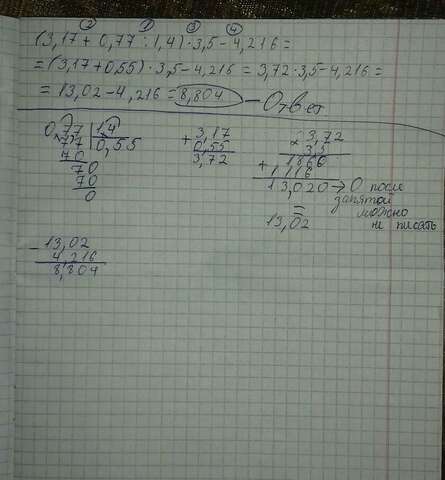 ② ① ③ ④
(3,17 + 0,77 : 1,4) · 3,5 - 4,216 =
= (3,17 + 0,55) · 3,5 - 4,216 = 3,72 · 3,5 - 4,216 =
= 13,02 - 4,216 = 8,804 - Ответ
0,77 | 1,4
7,7 | 0,55
70
70
70
0
+ 3,17
0,55
3,72
3,72
3,5
1860
+ 1116
13,020 → 0 после запятой можно не писать
=
13,02
- 13,02
4,216
8,804